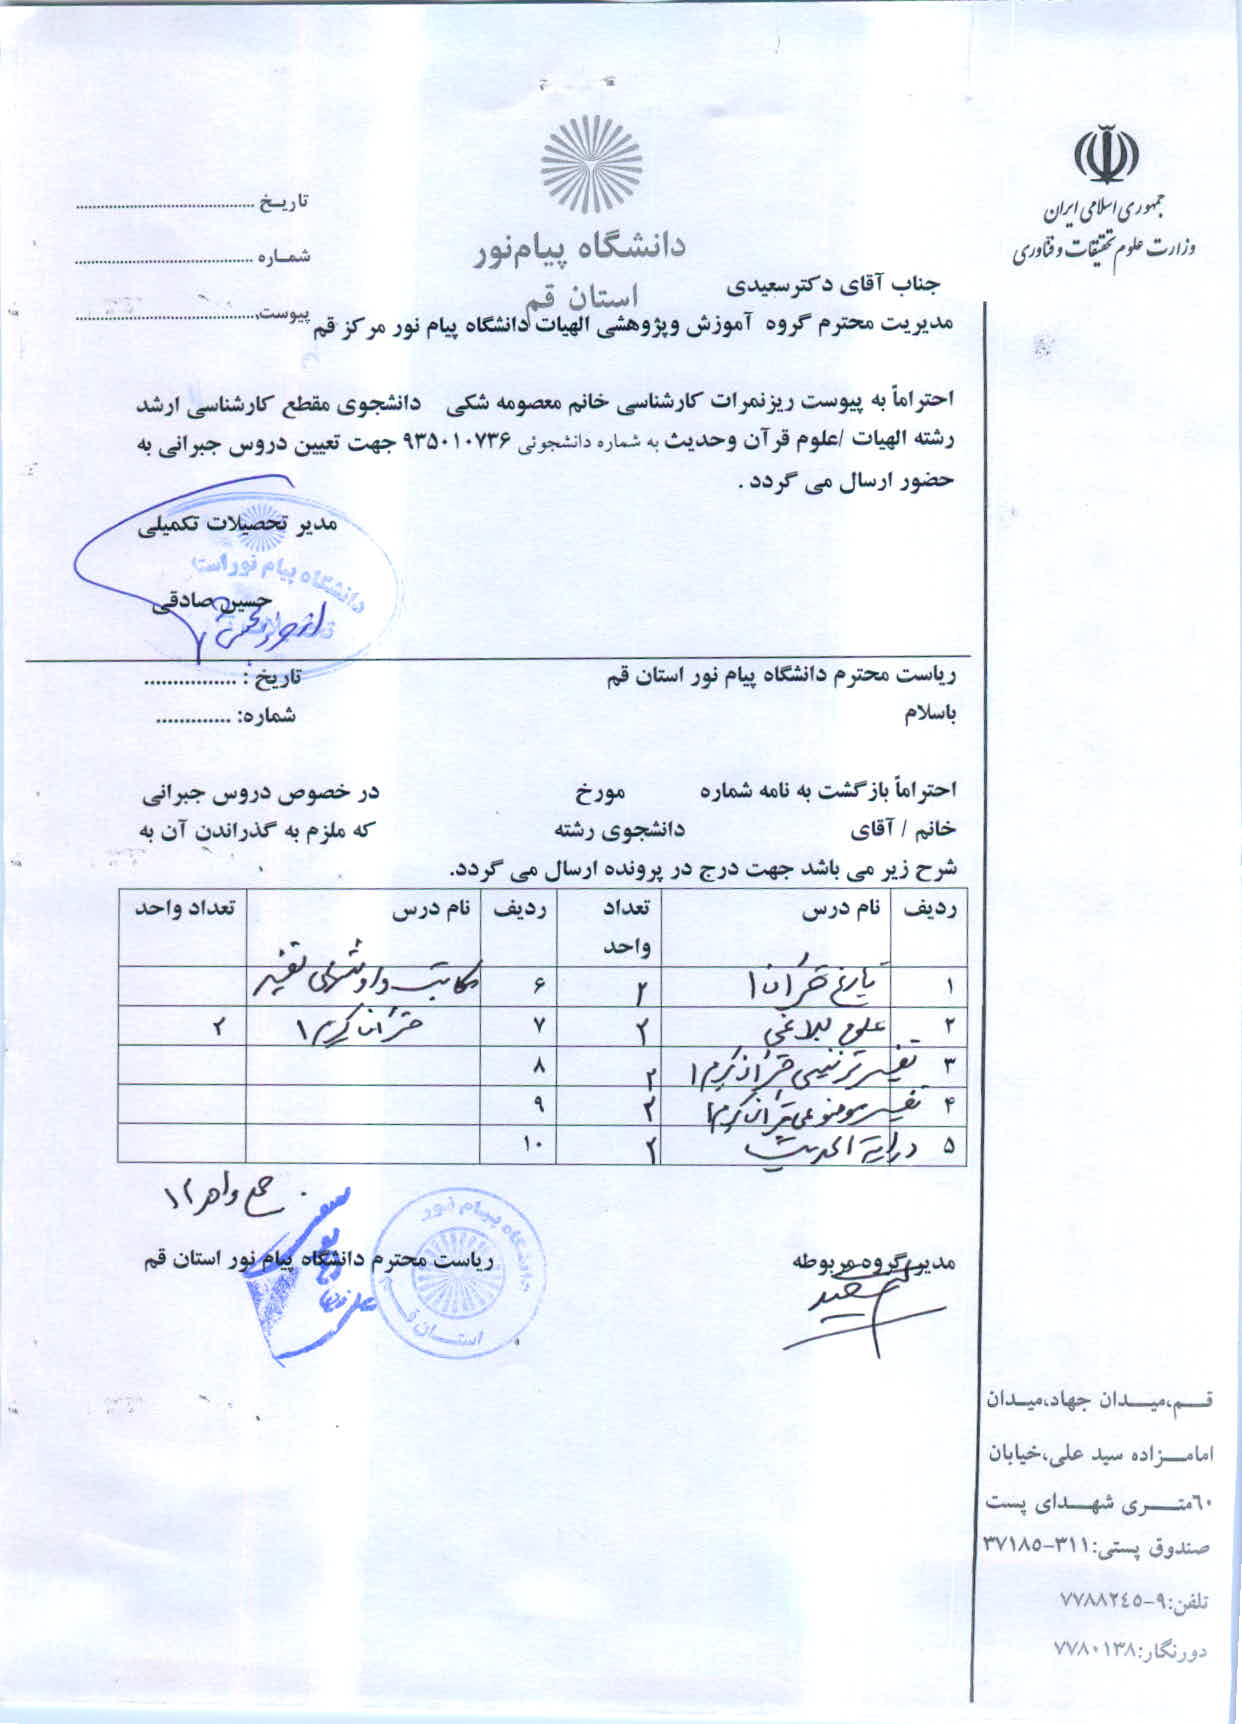 جمهوری اسلامی ایران
وزارت علوم تحقیقات و فناوری
دانشگاه پیام‌نور
استان قم
تاریـخ ........................................
شمـاره ........................................
پیوست........................................
جناب آقای دکترسعیدی
مدیریت محترم گروه آموزش وپژوهشی الهیات دانشگاه پیام نور مرکز قم
احتراماً به پیوست ریزنمرات کارشناسی خانم معصومه شکی دانشجوی مقطع کارشناسی ارشد
رشته الهیات /علوم قرآن وحدیث به شماره دانشجوئی ۹۳۵۰۱۰۷۳۶ جهت تعیین دروس جبرانی به
حضور ارسال می گردد .
مدیر تحصیلات تکمیلی
دانشگاه پیام نور است
حسین صادقی
ریاست محترم دانشگاه پیام نور استان قم
تاریخ : ................
باسلام
شماره: .............
احتراماً بازگشت به نامه شماره مورخ در خصوص دروس جبرانی
خانم / آقای دانشجوی رشته که ملزم به گذراندن آن به
شرح زیر می باشد جهت درج در پرونده ارسال می گردد.
ردیف نام درس تعداد واحد ردیف نام درس تعداد واحد
۱ تاریخ قرآن ۱ ۲ ۶ مکاتب و روشهای تفسیر
۲ علوم بلاغی ۲ ۷ قرآن کریم ۱ ۲
۳ تفسیر ترتیبی قرآن کریم ۱ ۲ ۸
۴ تفسیر موضوعی قرآن کریم ۱ ۲ ۹
۵ درایة الحدیث ۲ ۱۰
جمع واحد ۱۲
مدیر گروه مربوطه
ریاست محترم دانشگاه پیام نور استان قم
دانشگاه پیام نور
استان قم
قــم،میــدان جهاد،میـدان
امامــزاده سید علی،خیابان
۶۰متــری شهــدای پست
صندوق پستی:۳۱۱-۳۷۱۸۵
تلفن:۹-۷۷۸۸۲٤٥
دورنگار:۷۷۸۰۱۳۸